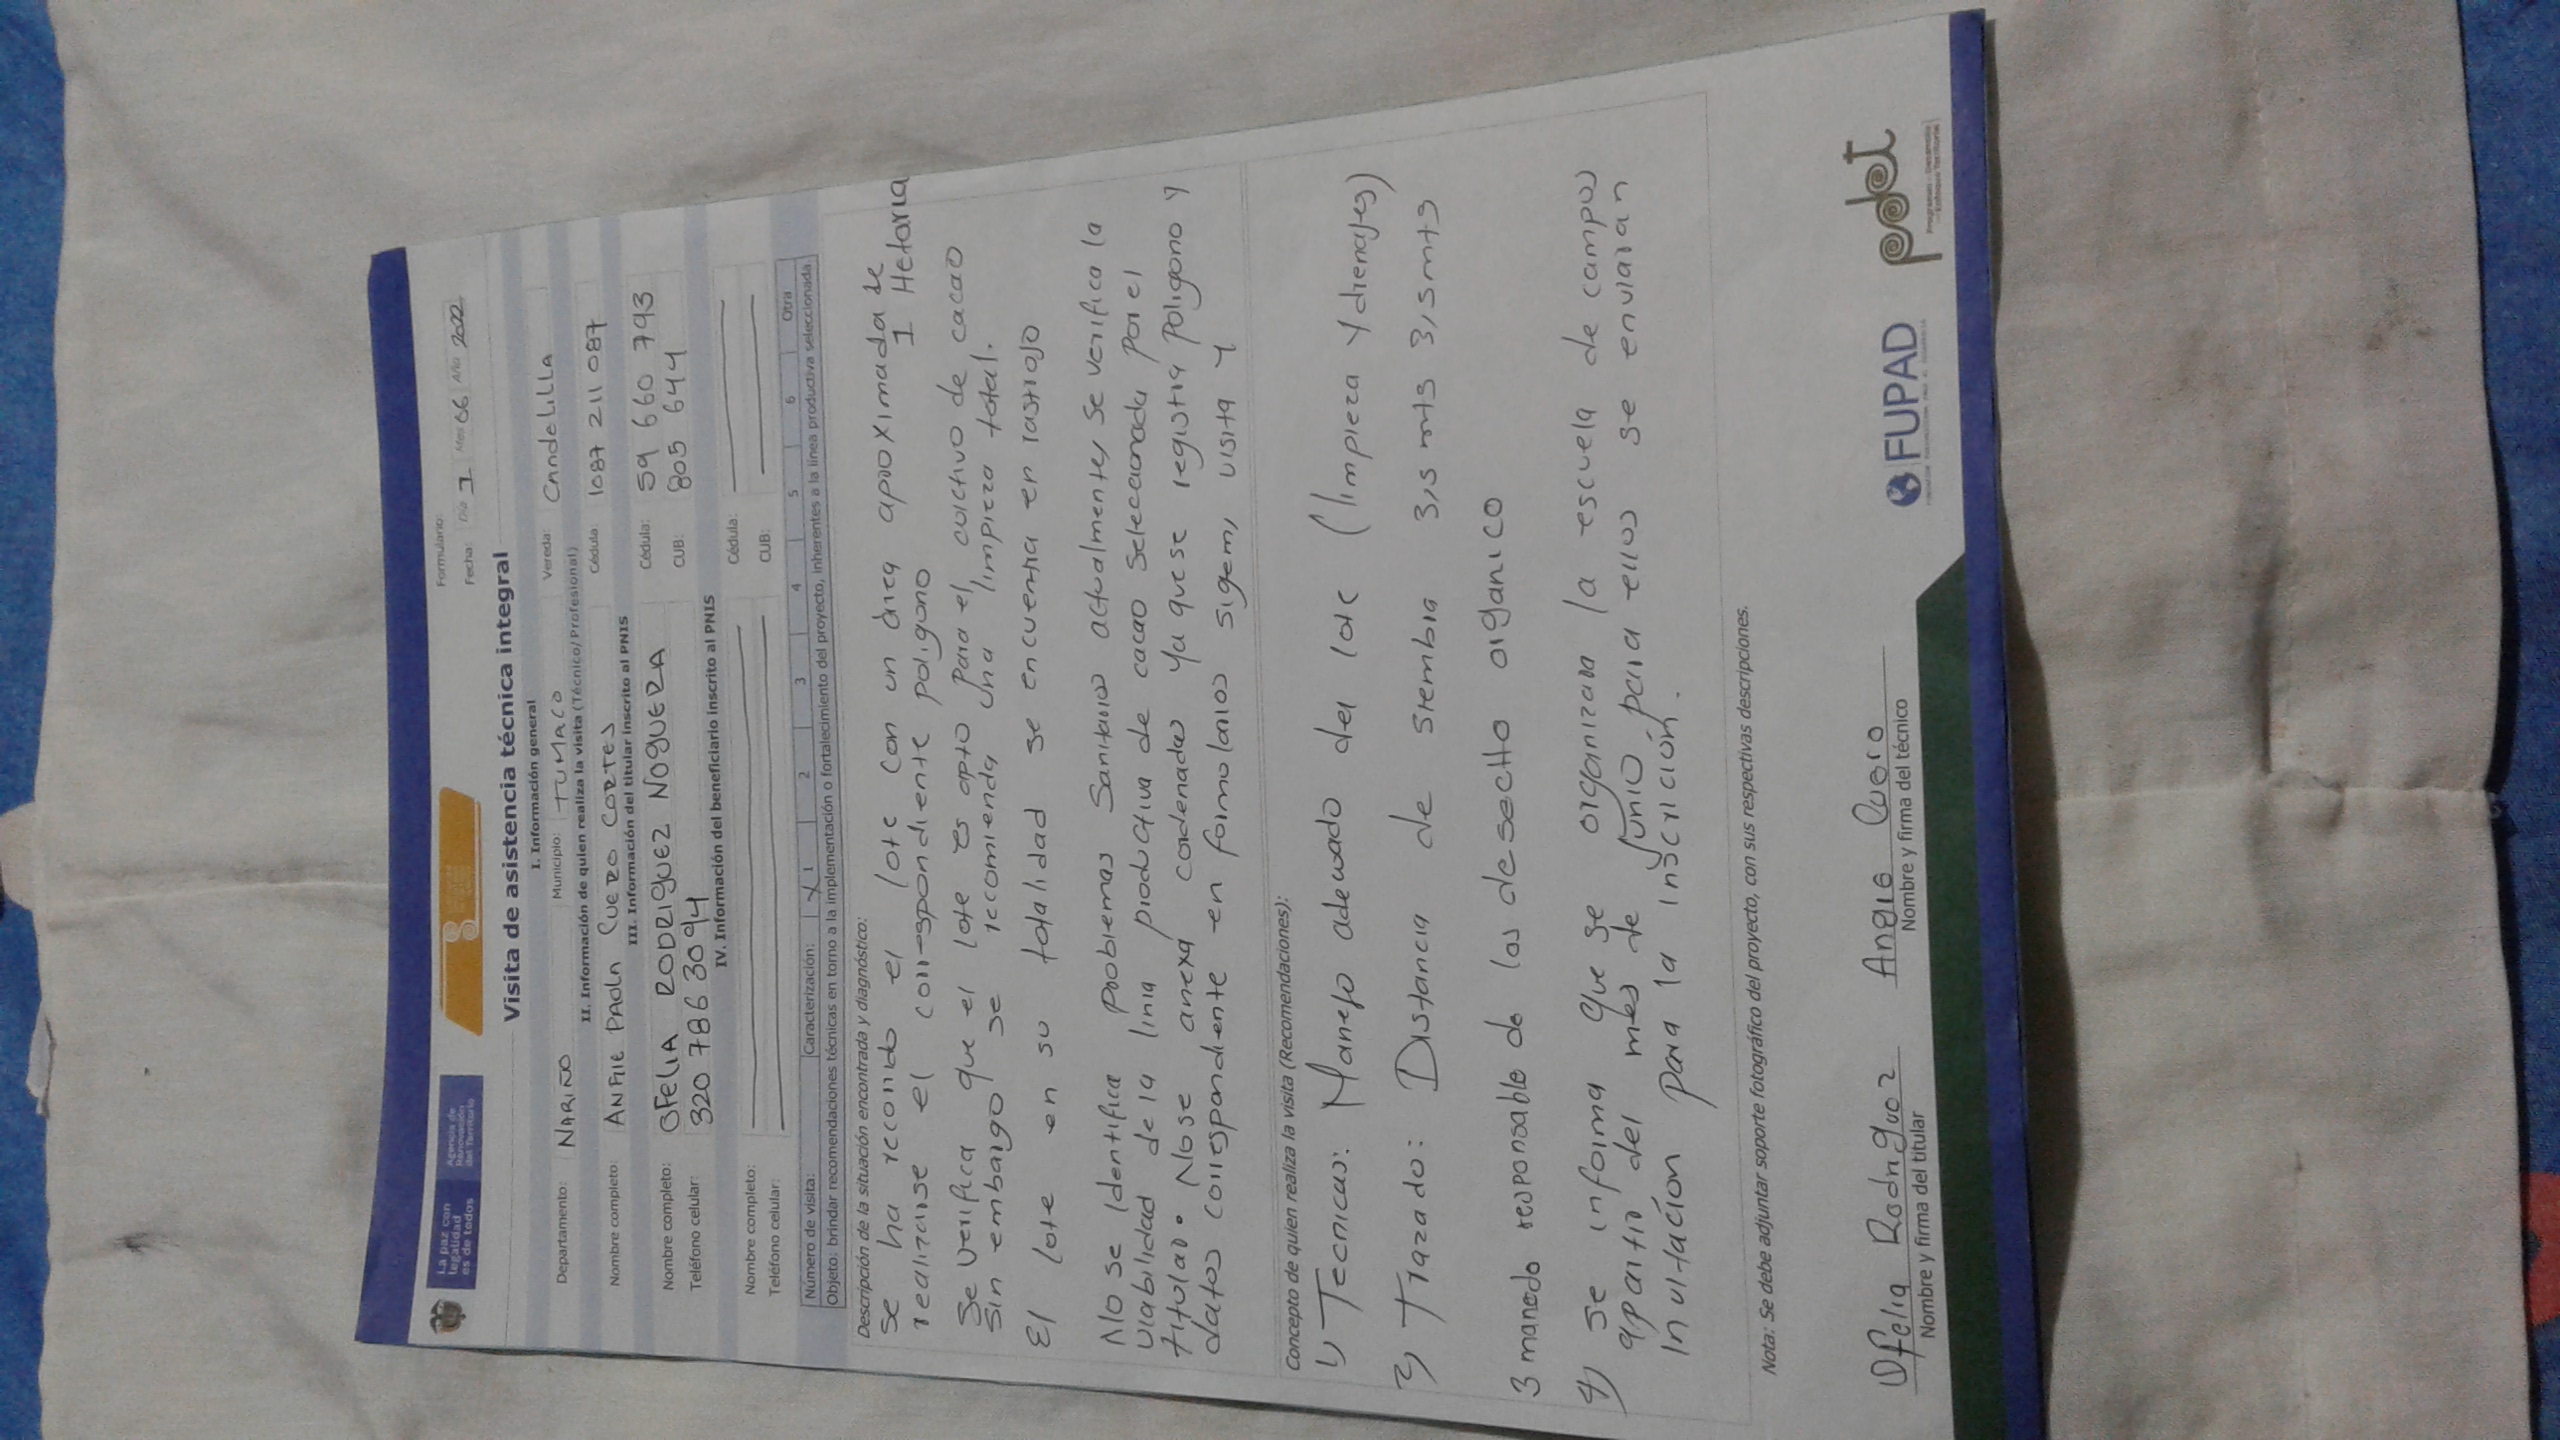 La paz con
legalidad
es de todos
Agencia de
Renovación
del Territorio
Formulario:
Fecha: Día 1 Mes 06 Año 2022
Visita de asistencia técnica integral
I. Información general
Departamento: NARIÑO Municipio: TUMACO Vereda: CANDELILLA
II. Información de quien realiza la visita (Técnico/Profesional)
Nombre completo: ANGIE PAOLA CUERO CORTES Cédula: 1087 211 087
III. Información del titular inscrito al PNIS
Nombre completo: OFELIA RODRIGUEZ NOGUERA Cédula: 59 660 793
Teléfono celular: 320 786 3094 CUB: 805 644
IV. Información del beneficiario inscrito al PNIS
Nombre completo: Cédula:
Teléfono celular: CUB:
Número de visita: Caracterización: X 1 2 3 4 5 6 Otra
Objeto: brindar recomendaciones técnicas en torno a la implementación o fortalecimiento del proyecto, inherentes a la línea productiva seleccionada.
Descripción de la situación encontrada y diagnóstico:
se ha recorrido el lote con un área aproximada de 1 Hetaria
realizarse el correspondiente poligono
Se verifica que el lote es apto para el cultivo de cacao
sin embargo se recomienda una limpieza total.
El lote en su totalidad se encuentra en rastrojo
No se identifica problemas Sanitarios actualmente, se verifica la
viabilidad de la linia productiva de cacao seleccionada por el
titular. No se anexa cordenadas ya que se registra poligono y
datos correspondiente en formularios sigem, visita y
Concepto de quien realiza la visita (Recomendaciones):
1) Tecnicas: Manejo adecuado del lote (limpieza y drenajes)
2) Trazado: Distancia de siembra 3,5 mts 3,5 mts
3 manedo responsable de los desecho organico
4) se informa que se organizara la escuela de campos
apartir del mes de Junio, para ellos se enviaran
invitación para la inscrición.
Nota: Se debe adjuntar soporte fotográfico del proyecto, con sus respectivas descripciones.
Ofelia Rodriguez Angie Cuero
Nombre y firma del titular Nombre y firma del técnico
FUPAD
pdet